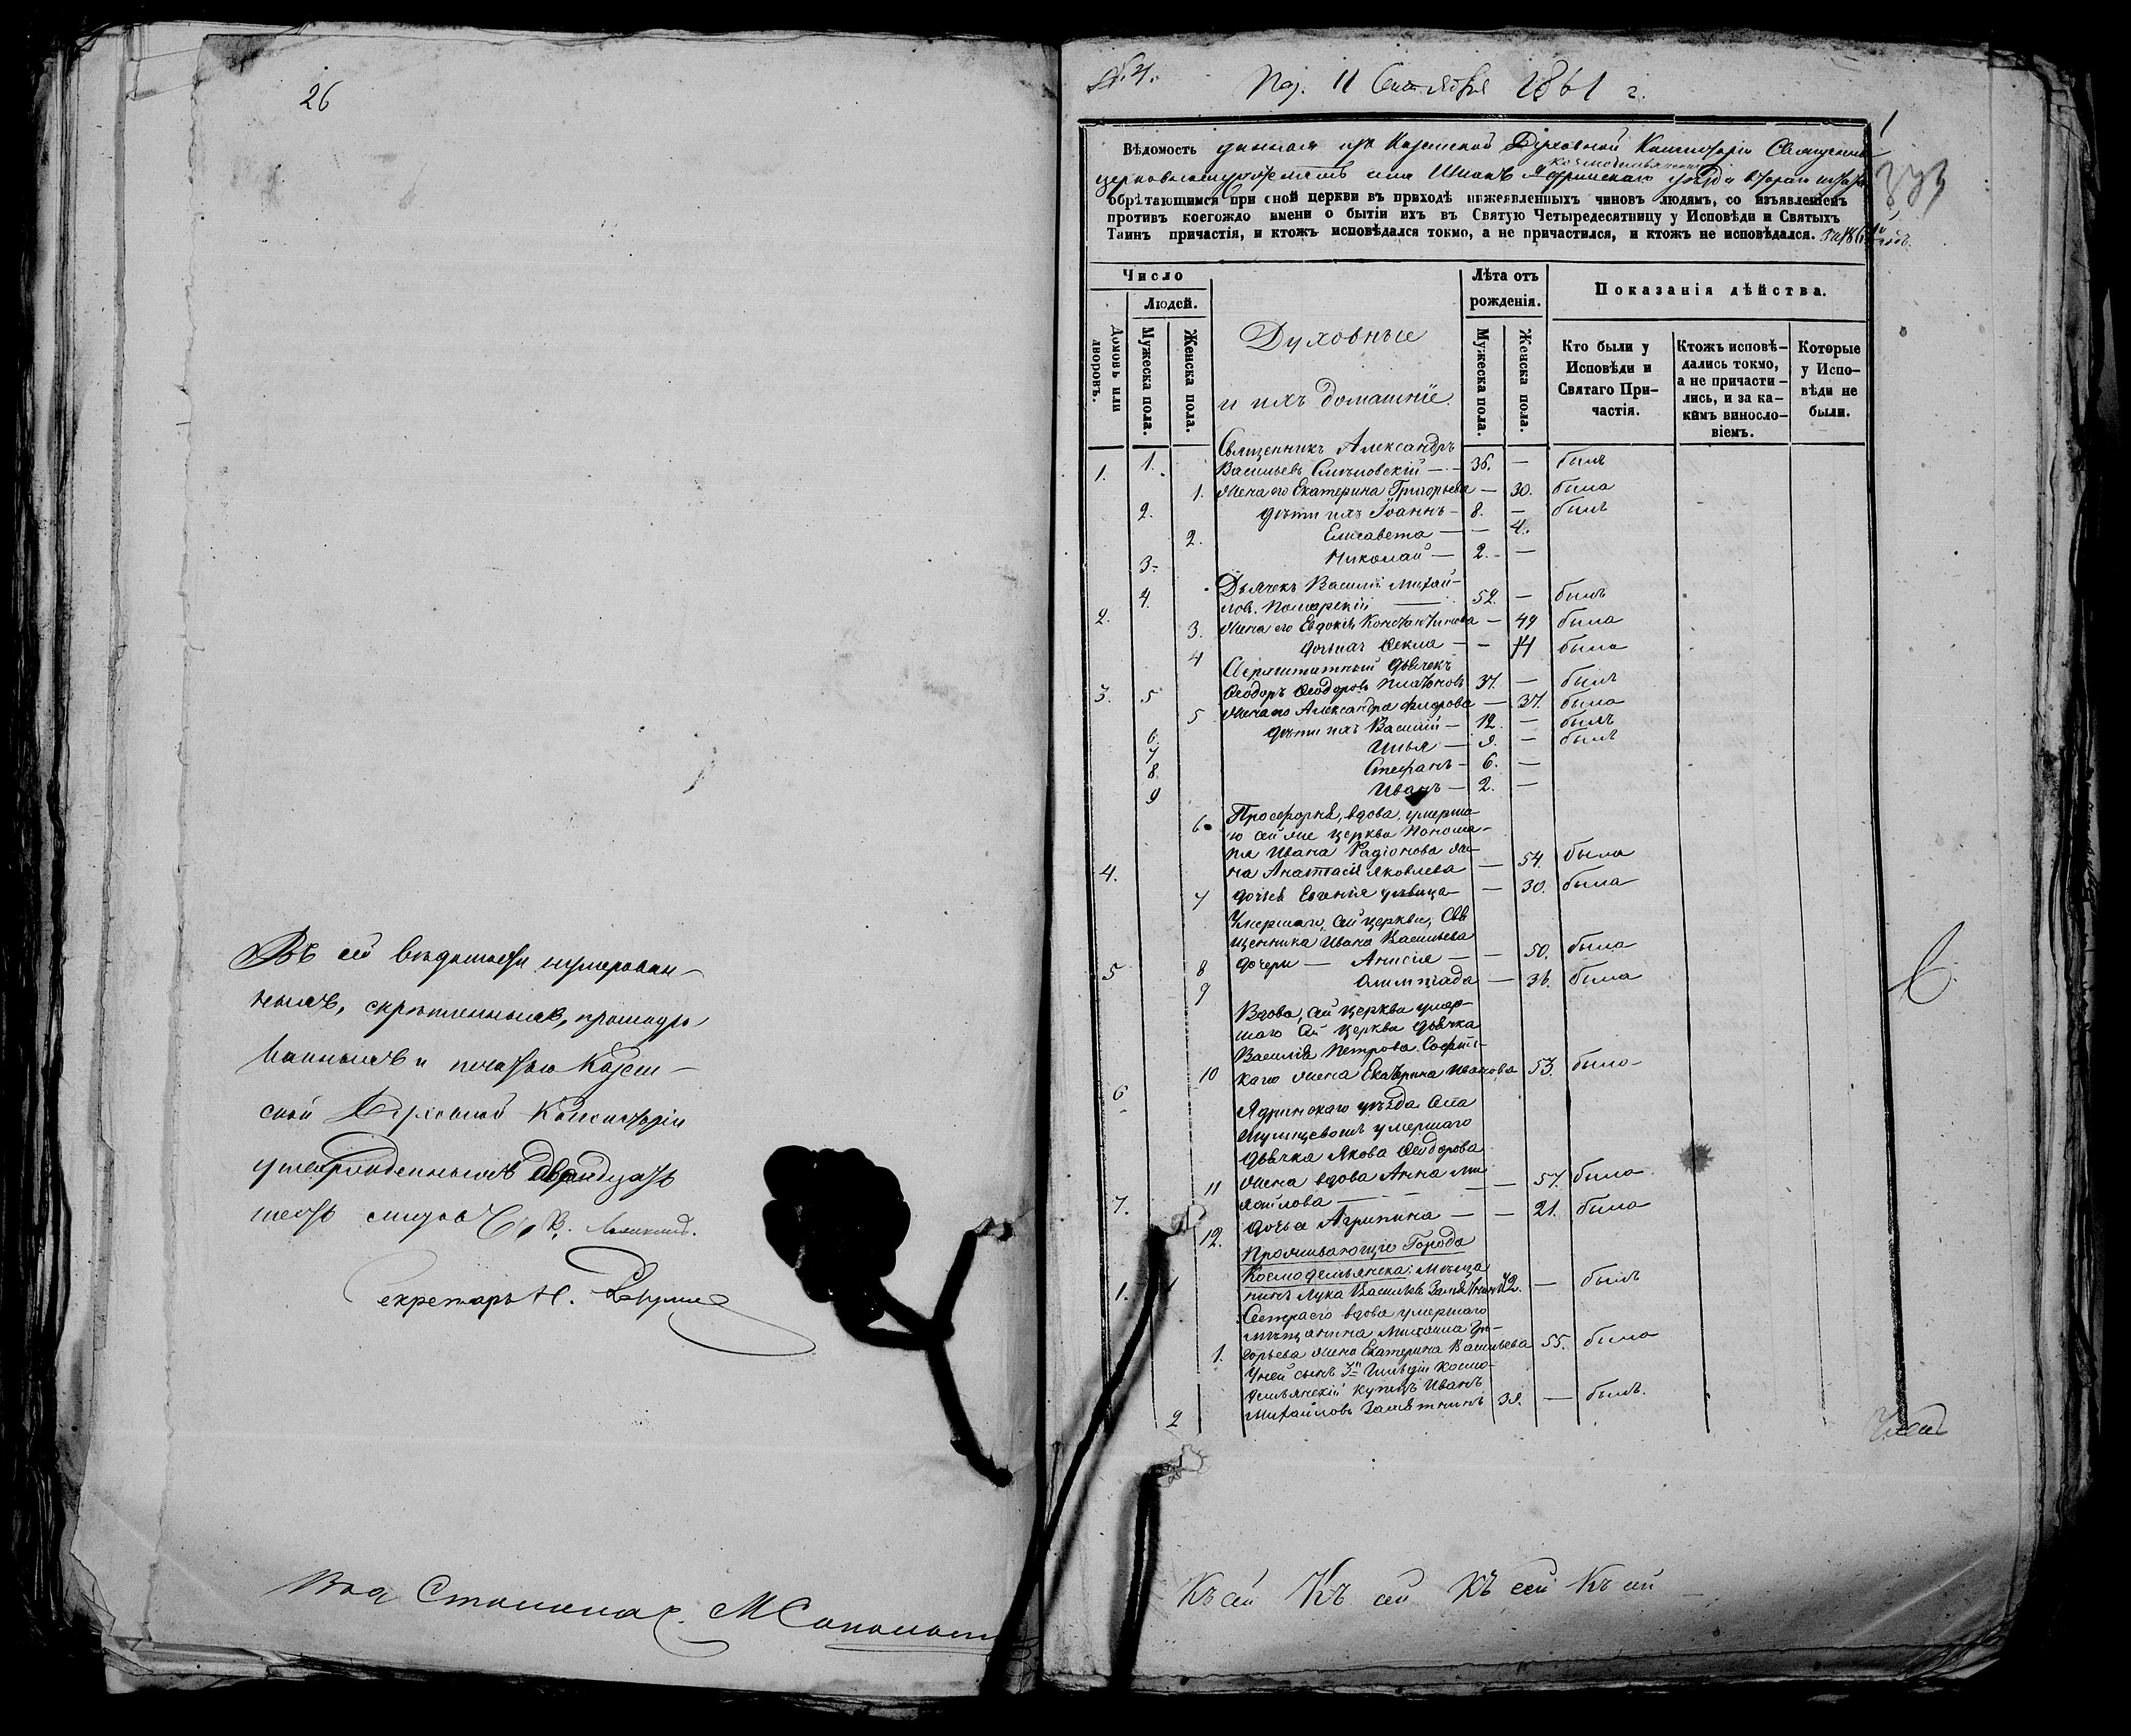 26
Въ сей ведомости нумерован-
ныхъ, скрѣпленныхъ, прошнуро
ванныхъ и печатью Казан-
ской Духовной Консисторіи
утвержденныхъ двадцать
шесть листовъ
Секретарь Н.
М
№ 4.
Пол. 11 Сентября 1861 г.
1
Вѣдомость данная изъ Казанской Духовной Консисторіи Священно
церковнослужителямъ села Козмодемьянскаго уѣзда
обрѣтающимся при оной церкви въ приходѣ нижеявленныхъ чиновъ людямъ, со изъявленіемъ
противъ коегождо имени о бытіи ихъ въ Святую Четыредесятницу у Исповѣди и Святыхъ
Таинъ причастія, и ктожъ исповѣдался токмо, а не причастился, и ктожъ не исповѣдался. За 1861 й годъ.
Число
Людей.
Домовъ или дворовъ.
Мужеска пола.
Женска пола.
Духовные
и ихъ домашніе.
Лѣта отъ рожденія.
Мужеска пола.
Женска пола.
Показанія дѣйства.
Кто были у Исповѣди и Святаго При-частія.
Ктожъ исповѣ-дались токмо, а не причасти-лись, и за ка-кимъ винosло-віемъ.
Которые у Испо-вѣди не были.
Священникъ Александръ
1. 1. Васильевъ — 36. — былъ
1. Жена его Екатерина Григорьева — 30. была
2. Дѣти ихъ Іоаннъ — 8. — былъ
2. Елисавета — — 4.
3. Николай — 2. —
Дьячекъ Василій Михай-
2. 4. ловъ — 52. — былъ
3. Жена его Евдокія Константинова — 49 была
4 дочь ихъ Ѳекла — — 14 была
Сверхштатный дьячекъ
3. 5 Ѳеодоръ Ѳеодоровъ Платоновъ 37. — былъ
5 Жена его Александра — 37. была
6. Дѣти ихъ Василій — 12. — былъ
7 Илья — 9. — былъ
8. Стефанъ — 6. —
9 Иванъ — 2. —
6. Просфорня, вдова, умерша-
го сей же церкви Понома-
ря Ивана Радіонова же-
4. на Анастасія Яковлева — 54. была
7 дочь ея Евгенія дѣвица — — 30. была
Умершаго, сей церкви, Свя
щенника Ивана Васильева
5 8 дочери — Анисія — — 50. была
9 Олимпіада — 36. была
Вдова, сей церкви умер-
шаго сей церкви дьячка
Василія Петрова
6 10 каго жена Екатерина Иванова 53. была
Ядринскаго уѣзда села
умершаго
дьячка Якова Ѳеодорова
11 Жена вдова Анна Ми
7. хайлова — — — — 57. была
12. дочь ея Агрипина — — 21. была
Проживающіе Города
Космодемьянска: Мѣща
1. 1 нинъ Лука Васильевъ Замятнинъ 72. — былъ
Сестра его вдова умершаго
мѣщанина Михаила Гри-
1. горьева жена Екатерина Васильева 55. была
У ней сынъ 3й Гильдіи Космо-
демьянскій купецъ Иванъ
2 Михайловъ Замятнинъ 39. — былъ.
Къ сей Къ сей Къ сей Къ сей